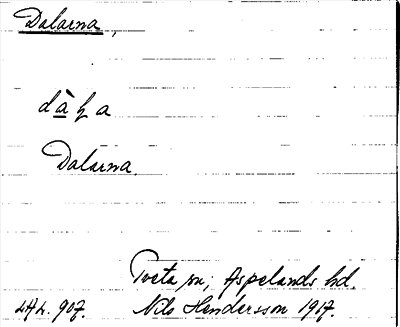 Dalarna,
dàɧa
Dalarna.
Tveta sn; Aspelands hd.
Nils Hendersson 1917.